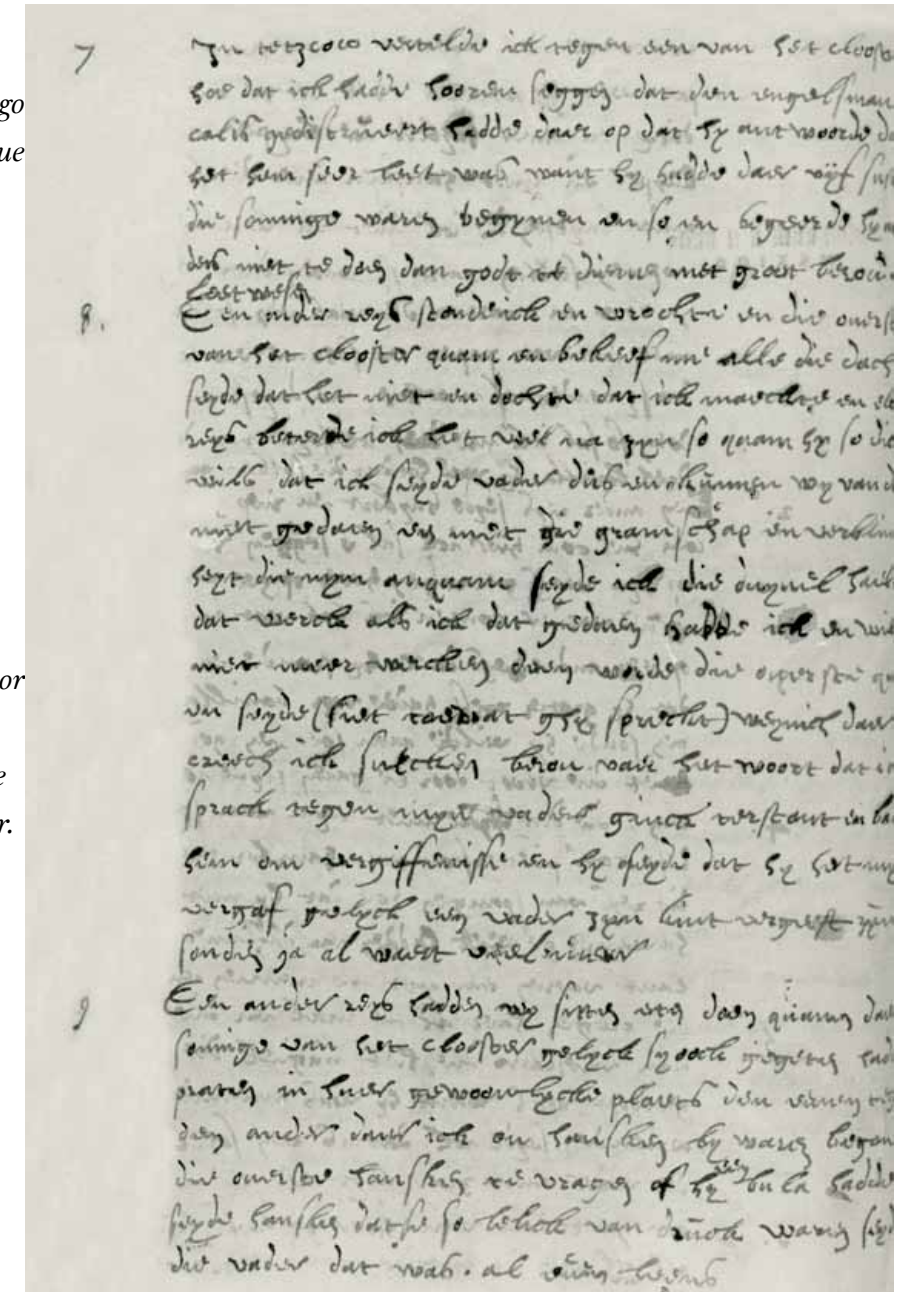 go
ue
or
e
r.
7 In tetzcoco vertelde ick tegen een van het cloost
hoe dat ick hadde hooren seggen dat den engelsman
calis gedistruert hadde daer op dat hy antwoorde d
het hem seer leet was want hy hadde daer vijf sus
die sommige waren begynen en so en begeerde hy
niet te doen dan godt te dienen met groot berou
leetwesen
8. Een ander reys stonde ick en wrochte en die overst
van het clooster quam en bekeef me alle die dach
seyde dat het niet en dochte dat ick maeckte en
reys beterde ick het wel na zyn so quam hy so di
wils dat ick seyde vader dus en kunnen wy van
niet gedaen en met die gramschap en verblin
heyt die myn anquam seyde ick die duyvel hael
dat werck als ick dat gedaen hadde ick en wil
niet meer wercken doen worde die overste q
en seyde (siet toe wat ghy spreckt) weynich daer
creech ick sulcken berou vaer het woort dat i
sprack tegen myn vader ginck terstont en ba
hem om vergiffenisse en hy seyde dat hy het my
vergaf gelyck een vader zyn kint vergeeft zyn
sonden ja al waert veel meer
9 Een ander reys hadden wy sitten eten doen quamen dae
sommige van het clooster gelyck sy oock gegeten had
praten in haer gewoonlycke plaets den eenen te
den ander daer ick en hansken by waren began
die overste hansken te vragen of hy een bula hadde
seyde hansken datse so lelick van druck waren sey
die vader dat was al eveleens